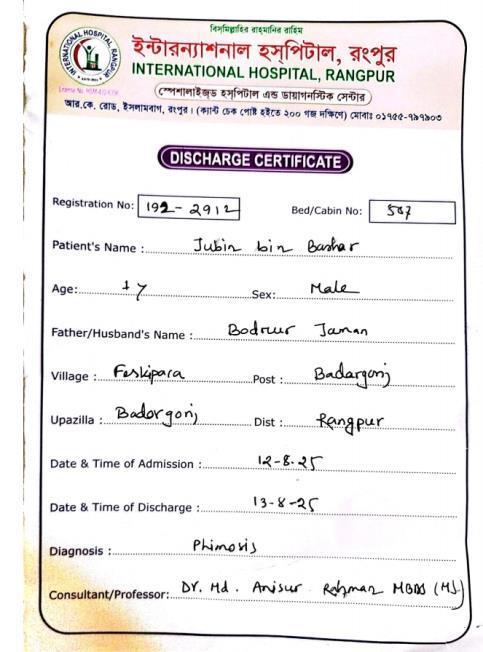 বিসমিল্লাহির রাহমানির রাহিম
INTERNATIONAL HOSPITAL, RANGPUR
ইন্টারন্যাশনাল হস্পিটাল, রংপুর
INTERNATIONAL HOSPITAL, RANGPUR
স্পেশালাইজড হস্পিটাল এন্ড ডায়াগনস্টিক সেন্টার
আর,কে, রোড, ইসলামবাগ, রংপুর। (ক্যান্ট চেক পোষ্ট হইতে ২০০ গজ দক্ষিণে) মোবাঃ ০১৭৫৫-৭৯৭৯০৩
DISCHARGE CERTIFICATE
Registration No: 192-2912 Bed/Cabin No: 507
Patient's Name : Jubin bin Bashar
Age: 17 Sex: Male
Father/Husband's Name : Jaman
Village : Post : Badargonj
Upazilla : Badorgonj Dist : Rangpur
Date & Time of Admission : 12-8-25
Date & Time of Discharge : 13-8-25
Diagnosis : Phimosis
Consultant/Professor: Dr. Md. Anisur Rahman MBBS